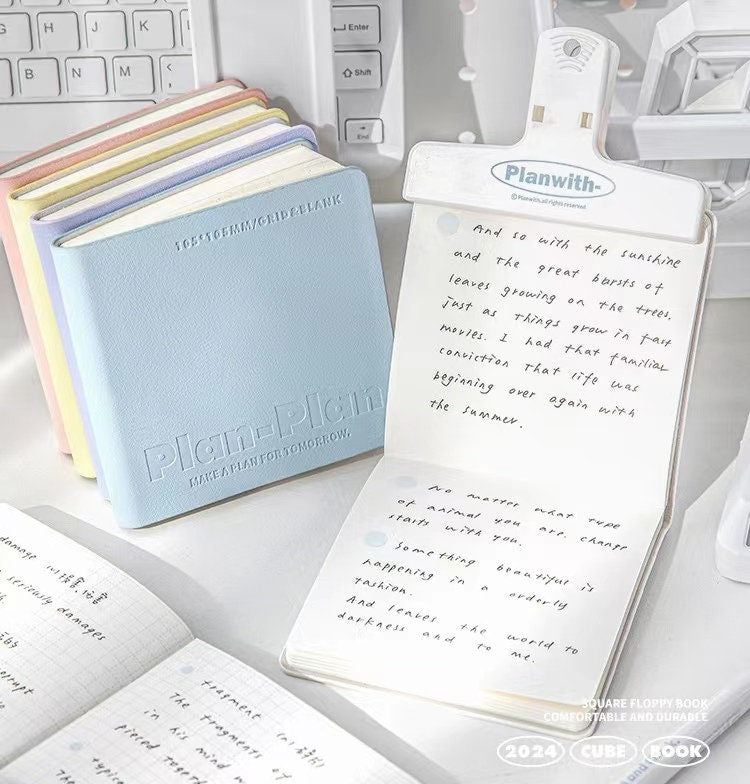 G H J K
B N M <
Enter
Shift
End
105*105MM/GRID&BLANK
Plan-Plan
MAKE A PLAN FOR TOMORROW.
Planwith-
© Planwith.all rights reserved
And so with the sunshine
and The great bursts of
leaves growing on the trees,
just as Things grow in fast
movies. I had that familiar
conviction That life was
beginning over again with
the summer.
No matter what type
of animal you are. change
starts with you.
Something beautiful is
happening in a orderly
fashion.
And leaves the world to
darkness and to me.
damage
seriously damages
fragment
The fragments of
in his mind
pieced
SQUARE FLOPPY BOOK
COMFORTABLE AND DURABLE
2024 CUBE BOOK